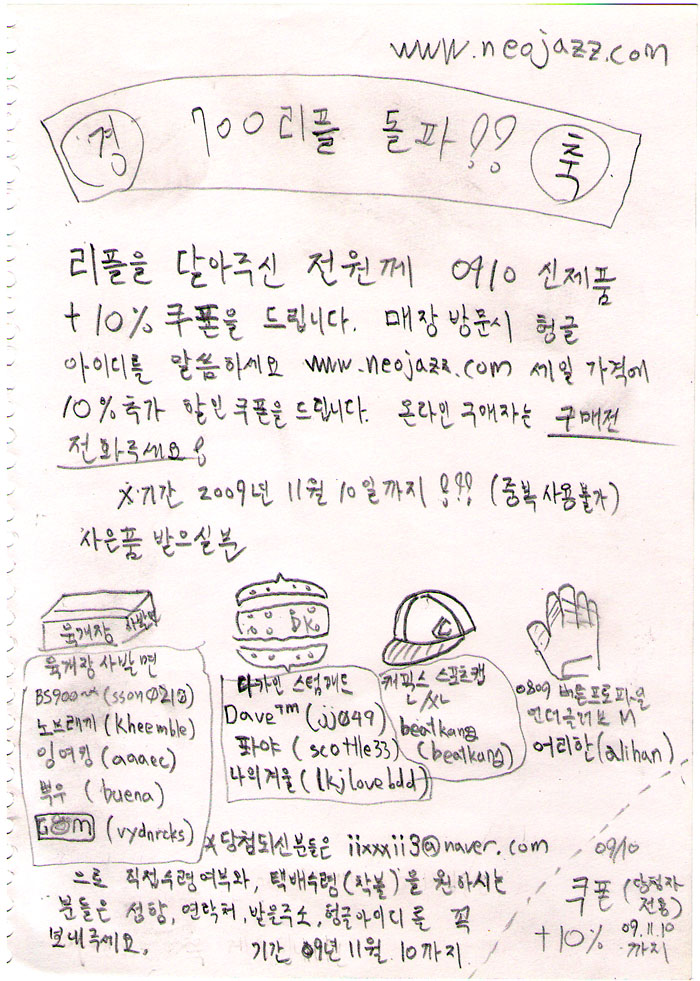 www.neojazz.com
경 700리플 돌파!! 축
리플을 달아주신 전원께 0910 신제품
+10% 쿠폰을 드립니다. 매장 방문시 헝글
아이디를 말씀하세요 www.neojazz.com 세일 가격에
10% 추가 할인 쿠폰을 드립니다. 온라인 구매자는 구매전
전화주세요!
※기간 2009년 11월 10일까지 !!! (중복사용불가)
사은품 받으실분
육개장 사발면
육개장 사발면
BS900~ (sson0210)
노브래끼 (kheemble)
잉여킹 (aaaec)
뽁우 (buena)
GOM (vydnrcks)
DK
다카인 스텀패드
Dave™ (jj049)
퐈야 (scottle33)
나의겨울 (lkjlovebdd)
C
캐픽스 스포츠캡
L/XL
beatkang
(beatkang)
0809 버튼프로파일
언더글러브 M
어리한(alihan)
※당첨되신분들은 iixxxii3@naver.com
으로 직접수령여부와, 택배수령(착불)을 원하시는
분들은 성함, 연락처, 받을주소, 헝글아이디를 꼭
보내주세요.
기간 09년 11월 10까지
09/10
쿠폰 (당첨자
전용)
+10% 09.11.10
까지